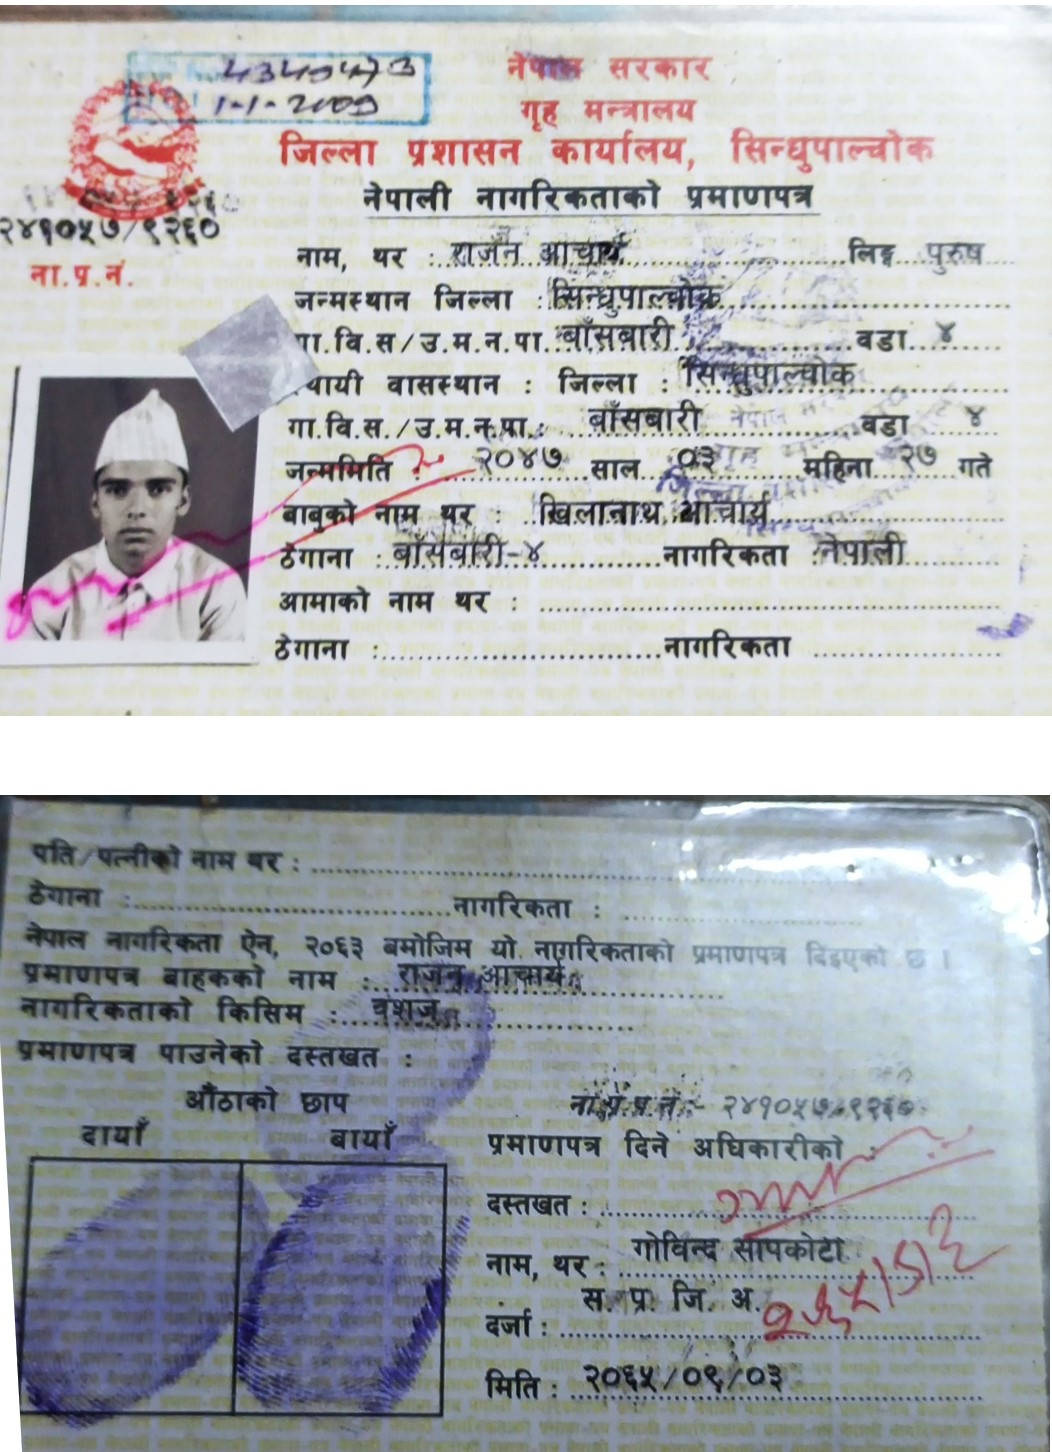 नेपाल सरकार
गृह मन्त्रालय
जिल्ला प्रशासन कार्यालय, सिन्धुपाल्चोक
नेपाली नागरिकताको प्रमाणपत्र
२४१०५७/९२६०
ना.प्र.नं.
नाम, थर : राजन आचार्य लिङ्ग पुरुष
जन्मस्थान जिल्ला : सिन्धुपाल्चोक
गा.वि.स/उ.म.न.पा. बाँसबारी वडा ४
यायी वासस्थान : जिल्ला : सिन्धुपाल्चोक
गा.वि.स./उ.म.न.पा.: बाँसबारी वडा ४
जन्ममिति : २०४७ साल ०३ महिना २७ गते
बाबुको नाम थर : खिलानाथ आचार्य
ठेगाना : बाँसबारी-४ नागरिकता नेपाली
आमाको नाम थर :
ठेगाना : नागरिकता
पति/पत्नीको नाम थर :
ठेगाना : नागरिकता :
नेपाल नागरिकता ऐन, २०६३ बमोजिम यो नागरिकताको प्रमाणपत्र दिइएको छ ।
प्रमाणपत्र बाहकको नाम : राजन आचार्य
नागरिकताको किसिम : वंशज
प्रमाणपत्र पाउनेको दस्तखत :
औंठाको छाप
दायाँ बायाँ
ना.प्र.प.नं.:- २४१०५७/९२६०
प्रमाणपत्र दिने अधिकारीको :
दस्तखत :
नाम, थर : गोविन्द सापकोटा
दर्जा : स. प्र. जि. अ.
मिति : २०६५/०९/०३